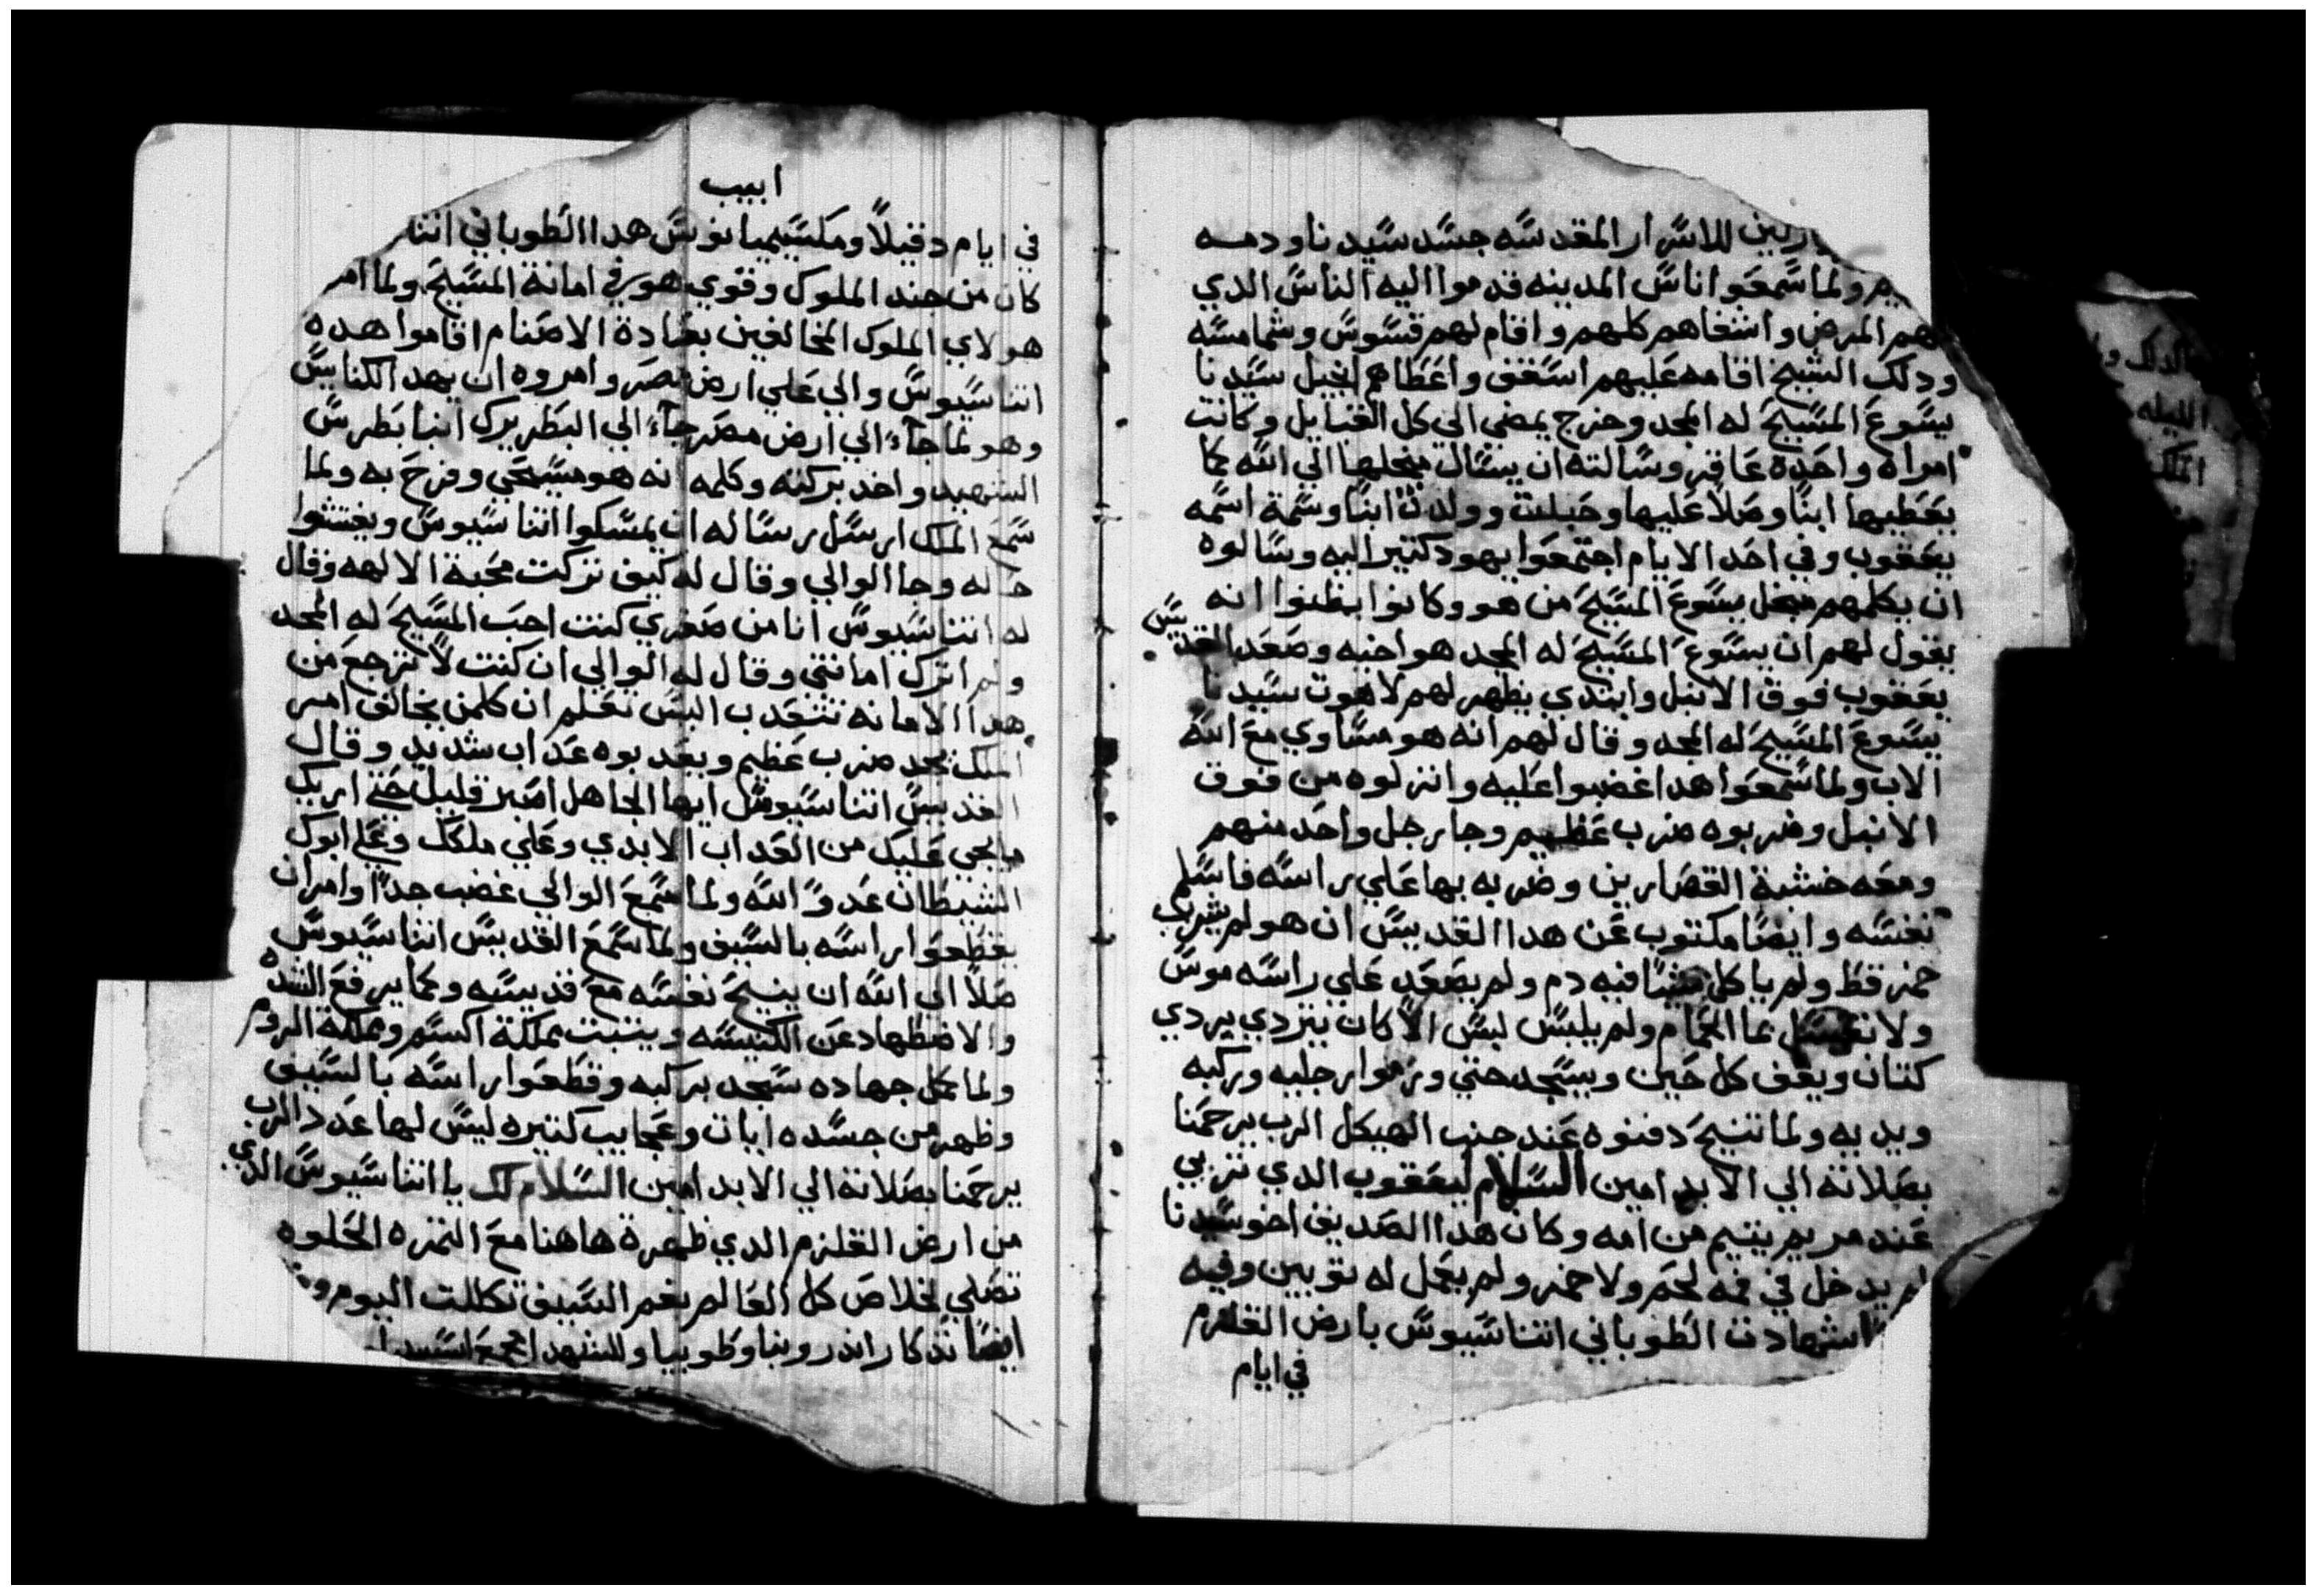 للاسرار المقدسه جسد سيدنا ودمه
ولما سمعوا اناس المدينه قدموا اليه الناس الدي
بهم المرض واشفاهم كلهم واقام لهم قسوس وشمامسه
ودلك الشيخ اقامه عليهم اسقف واعطاهم انجيل سيدنا
يسوع المسيح له المجد وخرج يمضي الي كل القبايل وكانت
امراه واحده عاقر وسالته ان يسال من اجلها الي الله كما
يعطيها ابنا وصلا عليها وحبلت وولدت ابنا وسمة اسمه
يعقوب وفي احد الايام اجتمعوا يهود كتير اليه وسالوه
ان يكلمهم من اجل يسوع المسيح من هو وكانوا يظنوا انه
يقول لهم ان يسوع المسيح له المجد هو اخيه وصعد القديس
يعقوب فوق الانبل وابتدي يظهر لهم لاهوت سيدنا
يسوع المسيح له المجد وقال لهم انه هو مساوي مع الله
الاب ولما سمعوا هدا غضبوا عليه وانزلوه من فوق
الانبل وضربوه ضرب عظيم وجا رجل واحد منهم
ومعه خشبة القصارين وضربه بها علي راسه فاسلم
نفسه وايضا مكتوب عن هدا القديس ان هو لم يشرب
خمر قط ولم ياكل شيا فيه دم ولم يصعد علي راسه موس
ولا بما الحمام ولم يلبس لبس الا كان يتردي بردي
كتان ويقف كل حين ويسجد حتي ورموا رجليه وركبه
ويديه ولما تنيح دفنوه عند جنب الهيكل الرب يرحمنا
بصلاته الي الابد امين السلام ليعقوب الدي تربي
عند مريم يتيم من امه وكان هدا الصديق اخو سيدنا
لم يدخل في فمه لحم ولا خمر ولم يعمل له توبين وفيه
اشهادت الطوباني اتناسيوس بارض القلزم
في ايام
ابيب
في ايام دقيلا ومكسيميانوس هدا الطوباني اتنا
كان من جند الملوك وقوي هو في امانة المسيح ولما امر
هولاي الملوك المخالفين بعبادة الاصنام اقاموا هده
اتناسيوس والي علي ارض مصر وامروه ان يهد الكنايس
وهو لما جاء الي ارض مصر جاء الي البطريرك انبا بطرس
الشهيد واخد بركته وكلمه انه هو مسيحي وفرح به ولما
سمع الملك ارسل رساله ان يمسكوا اتناسيوس ويفتشوا
حاله وجا الوالي وقال له كيف تركت محبة الالهه وقال
له اتناسيوس انا من صغري كنت احب المسيح له المجد
ولم اترك امانتي وقال له الوالي ان كنت لا ترجع من
هدا الامانه تتعدب اليس تعلم ان كلمن يخالف امر
الملك يجد ضرب عظيم ويعدبوه عداب شديد وقال
القديس اتناسيوس ايها الجاهل اصبر قليل حتي اريك
ما يجي عليك من العداب الابدي وعلي ملكك وعلي ابوك
الشيطان عدو الله ولما سمع الوالي غضب جدا وامر ان
يقطعوا راسه بالسيف ولما سمع القديس اتناسيوس
صلا الي الله ان ينيح نفسه مع قديسيه وكما يرفع الشده
والاضطهاد عن الكنيسه ويتبت مملكة اكسم ومملكة الروم
ولما كمل جهاده سجد بركبه وقطعوا راسه بالسيف
وظهر من جسده ايات وعجايب كتيره ليس لها عدد الرب
يرحمنا بصلاته الي الابد امين السلام لك يا اتناسيوس الدي
من ارض القلزم الدي ظهرة هاهنا مع التمره الحلوه
تصلي لخلاص كل العالم بفم السيف تكللت اليوم
ايضا تدكار اندرونيا وطوبيا وللشهدا